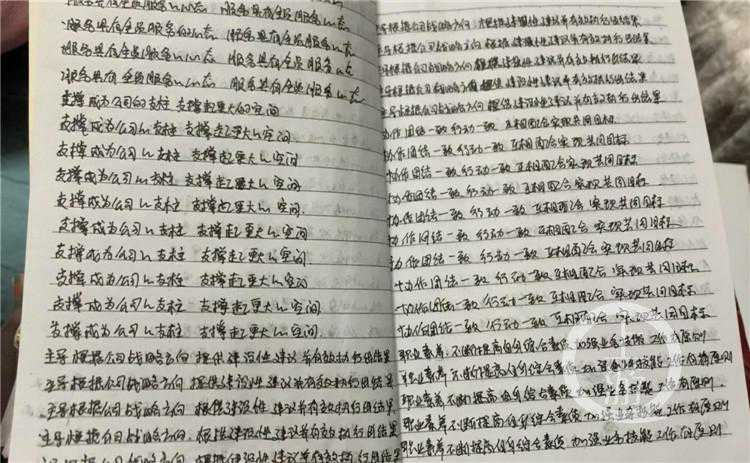 服务具有全员服务心态 服务具有全员服务心态
服务具有全员服务心态 服务具有全员服务心态
服务具有全员服务心态 服务具有全员服务心态
服务具有全员服务心态 服务具有全员服务心态
支撑成为公司的支柱 支撑起更大的空间
支撑成为公司的支柱 支撑起更大的空间
支撑成为公司的支柱 支撑起更大的空间
支撑成为公司的支柱 支撑起更大的空间
支撑成为公司的支柱 支撑起更大的空间
支撑成为公司的支柱 支撑起更大的空间
支撑成为公司的支柱 支撑起更大的空间
支撑成为公司的支柱 支撑起更大的空间
支撑成为公司的支柱 支撑起更大的空间
支撑成为公司的支柱 支撑起更大的空间
主导根据公司战略方向 提供建设性建议并有效执行团结果
主导根据公司战略方向 提供建设性建议并有效执行团结果
主导根据公司战略方向 提供建设性建议并有效执行团结果
主导根据公司战略方向 提供建设性建议并有效执行团结果
主导根据公司战略方向 提供建设性建议并有效执行团结果
主导根据公司战略方向 提供建设性建议并有效执行团结果
主导根据公司战略方向 提供建设性建议并有效执行团结果
主导根据公司战略方向 提供建设性建议并有效执行团结果
主导根据公司战略方向 提供建设性建议并有效执行团结果
协作团结一致 行动一致 互相配合实现共同目标
协作团结一致 行动一致 互相配合实现共同目标
协作团结一致 行动一致 互相配合实现共同目标
协作团结一致 行动一致 互相配合实现共同目标
协作团结一致 行动一致 互相配合实现共同目标
协作团结一致 行动一致 互相配合实现共同目标
协作团结一致 行动一致 互相配合实现共同目标
协作团结一致 行动一致 互相配合实现共同目标
协作团结一致 行动一致 互相配合实现共同目标
职业素养 不断提高自身综合素质 加强业务技能 工作有原则
职业素养 不断提高自身综合素质 加强业务技能 工作有原则
职业素养 不断提高自身综合素质 加强业务技能 工作有原则
职业素养 不断提高自身综合素质 加强业务技能 工作有原则
职业素养 不断提高自身综合素质 加强业务技能 工作有原则